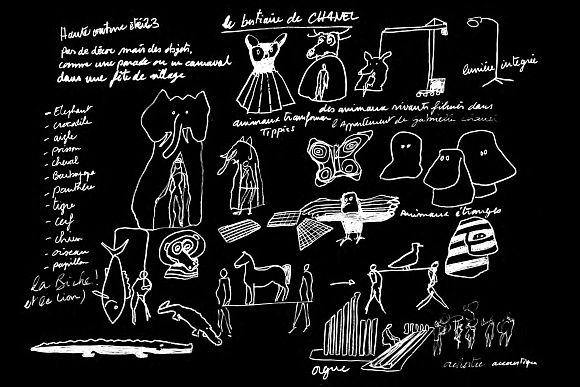 Haute couture été 23
le bestiaire de CHANEL
Pas de décor mais des objets,
comme une parade ou un carnaval
dans une fête de village
lumière intégrée
des animaux vivants filmés dans
l'Appartement de gabrielle chanel
animaux transformer
Tippies
- Elephant
- crocodile
- aigle
- poisson
- cheval
- Barbapapa
- panthère
- tigre
- cerf
- chien
- oiseau
- papillon
la Biche !
et le lion)
Animaux étranges
orgue
orchestre accoustique